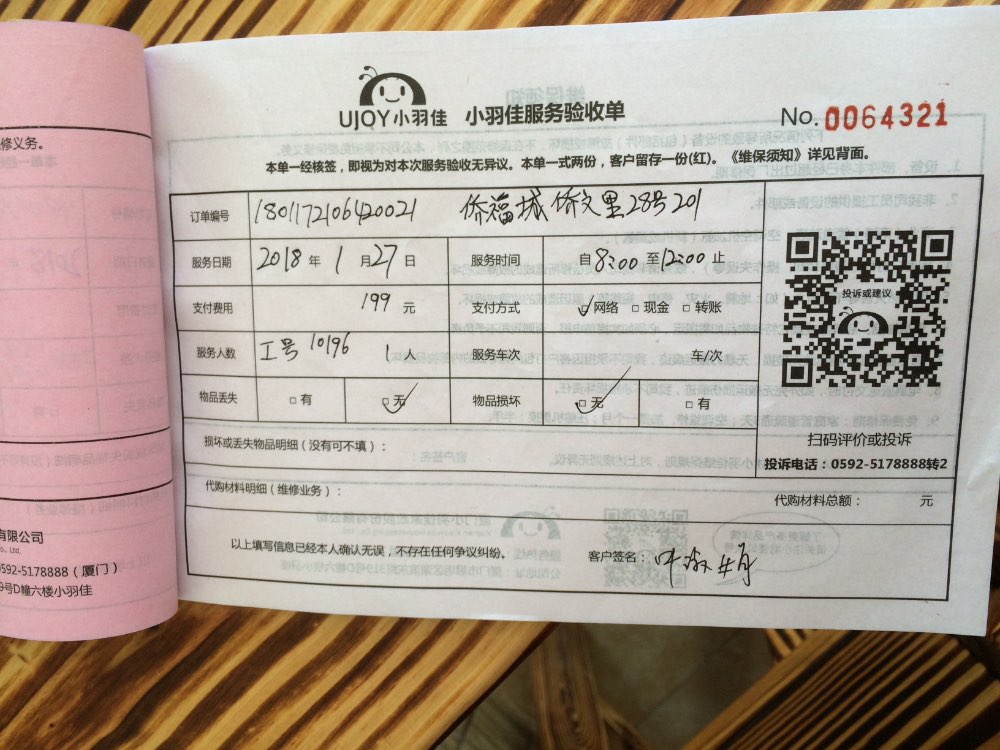 修义务。
有限公司
Co., Ltd.
0592-5178888（厦门）
9号D幢六楼小羽佳
UJOY小羽佳 小羽佳服务验收单
No. 0064321
本单一经核签，即视为对本次服务验收无异议。本单一式两份，客户留存一份(红)。《维保须知》详见背面。
订单编号 1801172106420021 侨福城侨文里28号201
服务日期 2018年1月27日 服务时间 自8:00至12:00止
支付费用 199元 支付方式 ☑网络 □现金 □转账
服务人数 工号10196 1人 服务车次 车/次
物品丢失 □有 ☑无 物品损坏 ☑无 □有
投诉或建议
扫码评价或投诉
投诉电话：0592-5178888转2
损坏或丢失物品明细（没有可不填）：
代购材料明细（维修业务）： 代购材料总额： 元
以上填写信息已经本人确认无误，不存在任何争议纠纷。 客户签名：叶